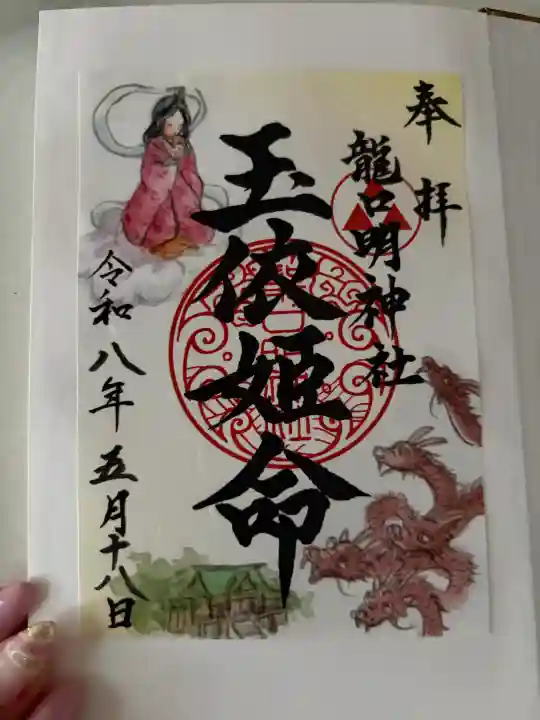 奉拝
龍口明神社
玉依姫命
令和八年五月十八日